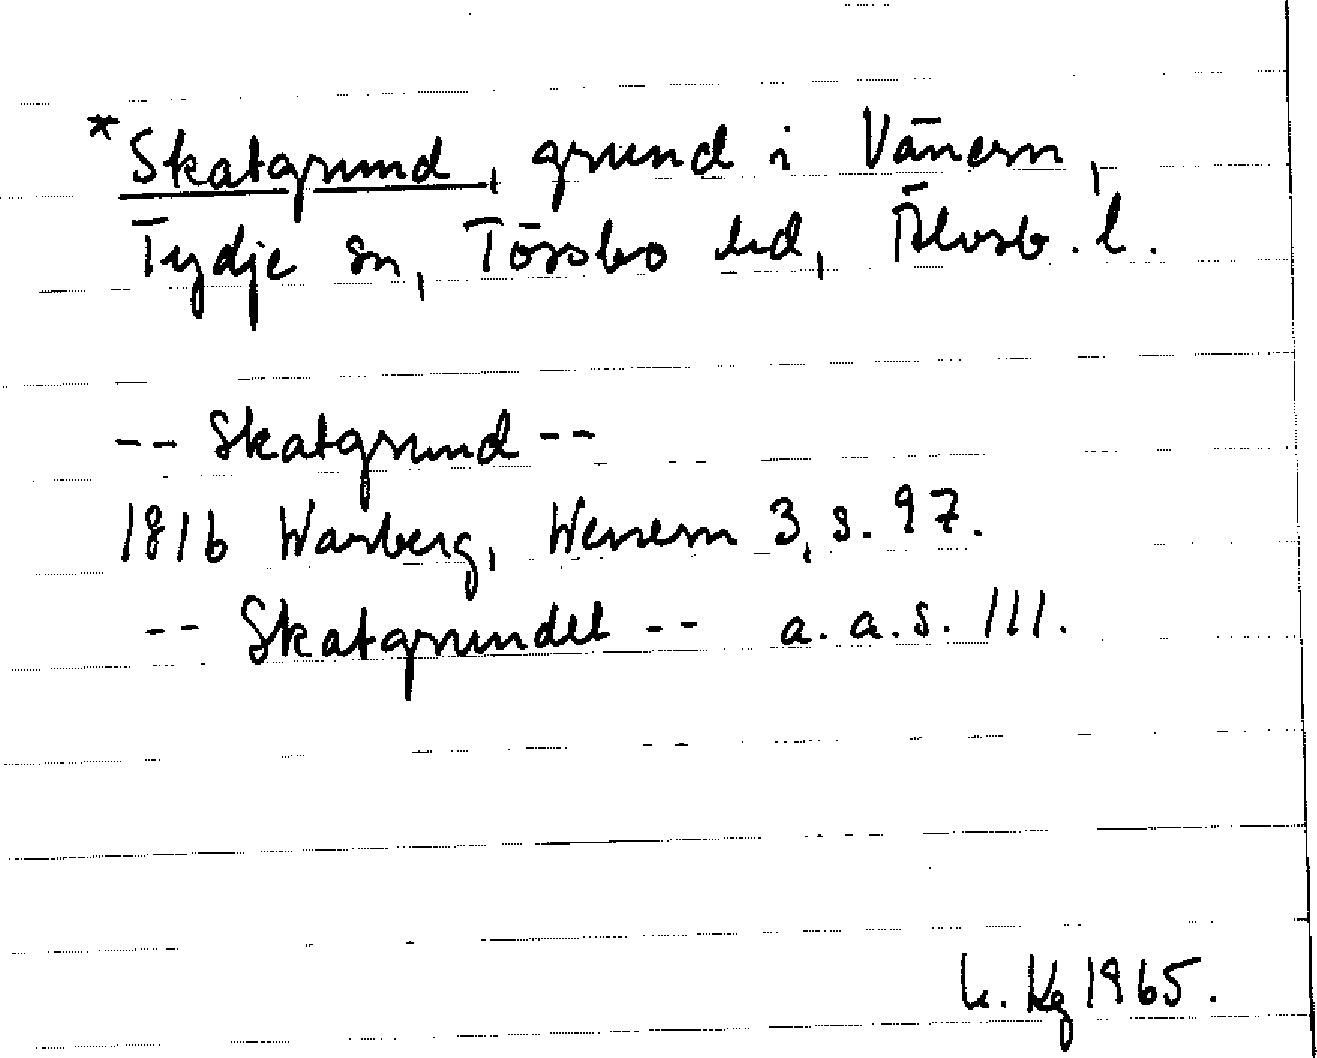 *Skatgrund, grund i Vänern,
Tydje sn, Tössbo hd, Älvsb. l.
-- Skatgrund --
1816 Warberg, Wenern 3, s. 97.
-- Skatgrundet -- a. a. s. 111.
h. Kg 1965.